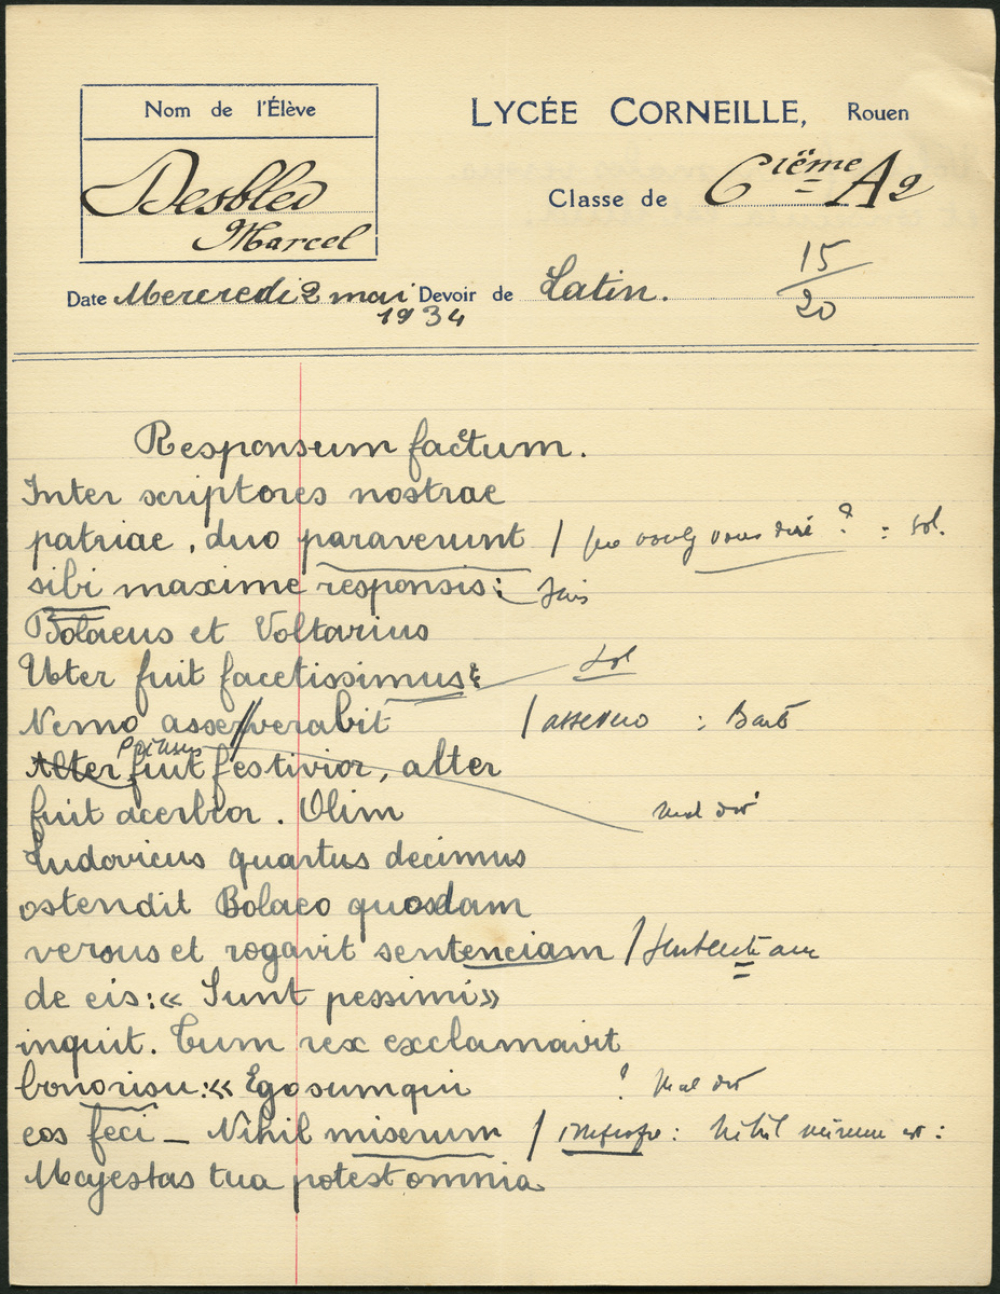 Nom de l'Élève
LYCÉE CORNEILLE, Rouen
Desbled
Marcel
Classe de 6ième A2
Date Mercredi 2 mai 1934 Devoir de Latin.
15/20
Responsum factum.
Inter scriptores nostrae
patriae, duo paraverunt / que voulez vous dire ? : sol.
sibi maxime responsis:
Bolaeus et Voltarius
Uter fuit facetissimus? sol
Nemo asserverabit / assevero : Barb
Alter Primus fuit festivior, alter
fuit acerbior. Olim mal dit
Ludovicus quartus decimus
ostendit Bolaeo quosdam
versus et rogavit sentenciam / sententiam
de eis: « Sunt pessimi »
inquit. Tum rex exclamavit
bono risu: « Ego sum qui ? mal dit
eos feci _ Nihil miserum / impropr : nihil mirum est :
Majestas tua potest omnia